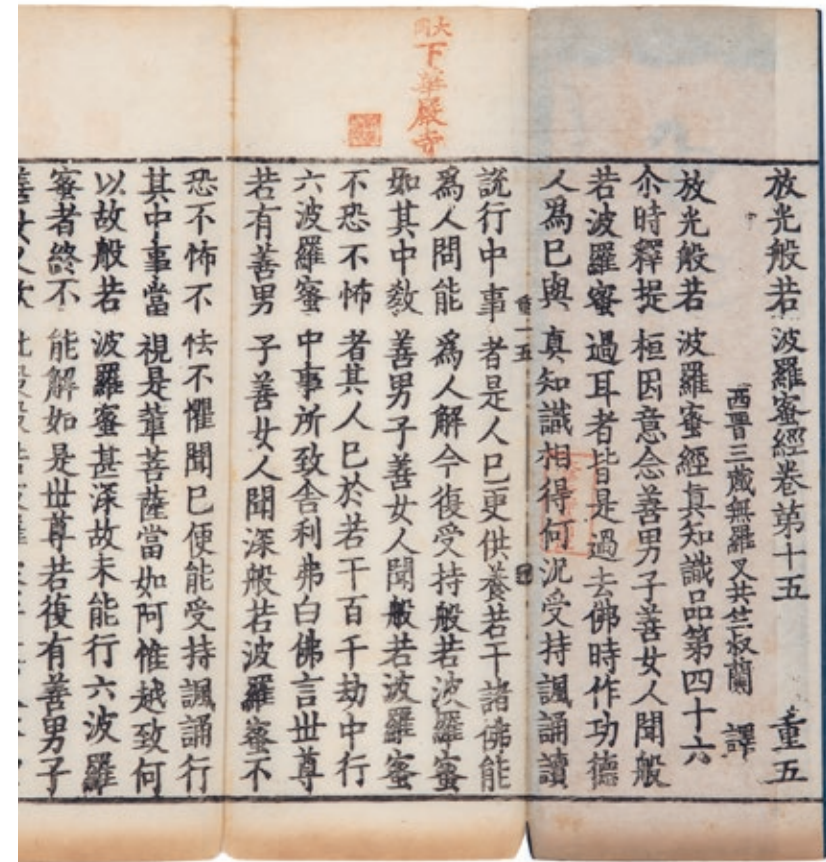 大同
下華嚴寺
放光般若波羅蜜經卷第十五 重五
西晉三藏無羅叉共竺叔蘭 譯
放光般若波羅蜜經真知識品第四十六
尒時釋提桓因意念善男子善女人聞般
若波羅蜜過耳者皆是過去佛時作功德
人爲已與真知識相得何況受持諷誦讀
重一五
說行中事者是人已更供養若干諸佛能
爲人問能爲人解今復受持般若波羅蜜
如其中教善男子善女人聞般若波羅蜜
不恐不怖者其人已於若干百千劫中行
六波羅蜜中事所致舍利弗白佛言世尊
若有善男子善女人聞深般若波羅蜜不
恐不怖不怯不懼聞已便能受持諷誦行
其中事當視是輩菩薩當如阿惟越致何
以故般若波羅蜜甚深故未能行六波羅
蜜者終不能解如是世尊若復有善男子